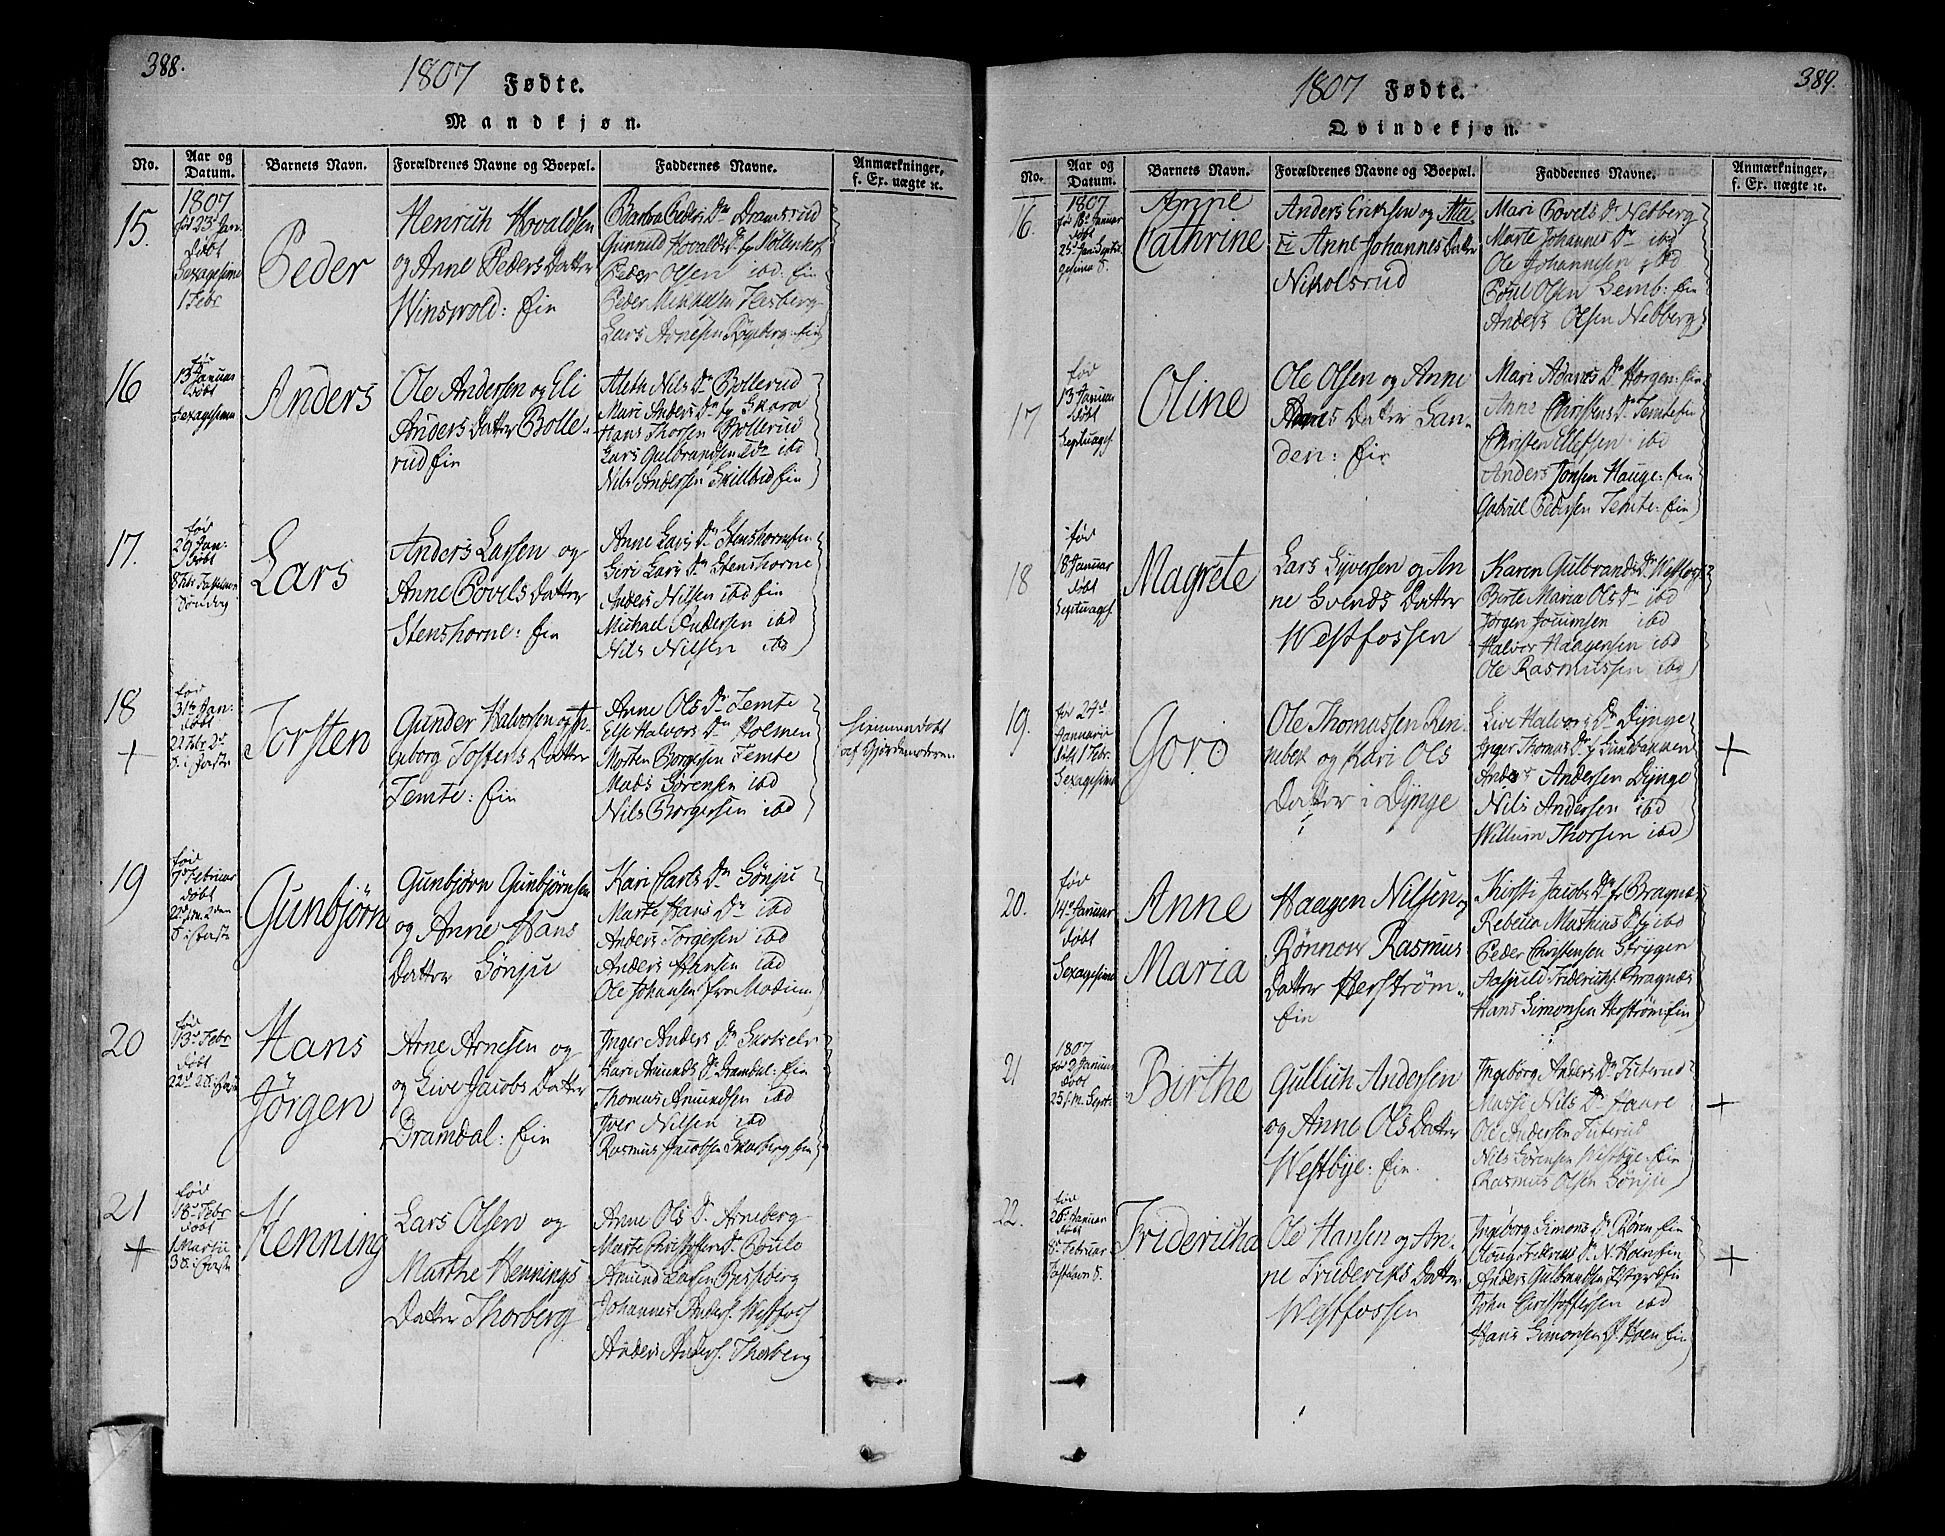 388.
1807 Fødte.
Mandkjøn.
No. Aar og Datum. Barnets Navn. Forældrenes Navne og Boepæl. Faddernes Navne. Anmærkninger, f. Ex. uægte ꝛc.
15.
1807
før 23 Jan.
døbt
Sexagesima
1 Febr
Peder
Henrich Hovaldsen
og Anne Peders Datter
Winswold: fin
Peder Olsen ibd. fin
Peder Mikkelsen
Lars Arnesen
16
før
13 Januar
døbt
Sexagesima
Anders
Ole Andersen og Eli
Anders Datter Bolle-
rud fin
Nils Dr Bollerud
Mari Anders Dr f Skara
Hans Thorsen Bollerud
Lars Gulbrandsen ibd
Nils Andersen fin
17.
før
29 Jan:
døbt
8 Febr
Søndag
Lars
Anders Larsen og
Anne Povels Datter
Stenshorne: fin
Anne Lars Dr Stenshorne fin
Siri Lars Dr Stenshorne
Anders Nilsen ibd fin
Michael Andersen ibd
Nils Nilsen ibd
18
+
før
31te Jan:
døbt
22 Febr 2d
S. i faste
Torsten
Gunder Halvorsen og In-
geborg Tostens Datter
Temte: fin
Anne Ols Dr Temte
Else Halvors Dr Holmen
Morten Borgersen Temte
Mads Sørensen ibd
Nils Borgersen ibd
Hiemmedøbt
af Giordemoderen
19
før
7d Februar
døbt
22d 2den
S i faste
Gunbjørn
Gunbjørn Gunbjørnsen
og Anne Hans
Datter Sønju
Kari Carls Dr Sønju
Marte Hans Dr ibd
Anders Jørgersen ibd
Anders Hansen ibd
Ole Johansen fra Modum
20
før
13d Febr
døbt
22d 2 S. i faste
Hans
Jørgen
Arne Arnesen og
og Live Jacobs Datter
Dramdal: fin
Inger Anders Dr
Kari Amunds Dr Dramdal: fin
Thomas Amundsen ibd
Iver Nilsen ibd
Rasmus Jacobsen Skarberg fin
21
+
før
18d Febr
døbt
1 Martii
3 S. i faste
Henning
Lars Olsen og
Marthe Hennings
Datter Thorberg
Anne Ols D. Arneberg
Marte Christoffer D.
Amund Larsen
Johannes Anders. Westfos
Anders Anders. Thorberg
389.
1807 Fødte.
Qvindekjøn.
No. Aar og Datum. Barnets Navn. Forældrenes Navne og Boepæl. Faddernes Navne. Anmærkninger, f. Ex. uægte ꝛc.
16.
1807
før 18d Januar
døbt
25d Jan Septua-
gesima S.
Anne
Cathrine
Anders Ericksen og
Anne Johannes Datter
Nikolsrud
Mari Povels D. Nebberg
Marte Johannes Dr ibd
Ole Johannesen ibd
Poul Olsen Semb: fin
Anders Olsen Nebberg
17
før
13 Januar
døbt
Septuages.
Oline
Ole Olsen og Anne
Datter San-
den: fin
Mari Adams Dr Horgen: fin
Anne Christens Dr Temte fin
Christen Ellefsen ibd
Anders Jonsen Hauge: fin
Gabriel Pedersen Temte: fin
18
før
8 Januar
døbt
Septuages.
Magrete
Lars Syversen og An
ne Svends Datter
Westfossen
Karen Gulbrands Dr Westfos
Birte Maria Ols Dr ibd
Jørgen ibd
Halvor Haagensen ibd
Ole Rasmussen ibd
19.
før 24d
Januarii
døbt 1 Febr.
Sexagesima
Goro
Ole Thomassen Ren-
nebek og Kari Ols
Datter i Dynge
Live Halvors Dr Dynge
Inger Thomas Dr f Sundbakken
Anders Andersen Dynge
Nils Andersen ibd
Willum Thorsen ibd
+
20.
før
14d Januar
døbt
Sexagesima
Anne
Maria
Haagen Nilsen og
Rønnow Rasmus
Datter Herstrøm-
fin
Kirsti Jacobs Dr f Bragnæs
Rebecca Mathias D f ibd
Peder Christensen Strygen
Friderichs. Bragnæs
Hans Simonsen Herstrøm fin
21
1807
før 2 Januar
døbt
25 f. m. Sept.
Birthe
Gullich Andersen
og Anne Ols Datter
Westbye: fin
Ingeborg Anders Dr Fiterud
Masse Nils Dr Haare
Ole Andersen Fiterud
Nils Sørensen Westbye: fin
Rasmus Olsen Sønju
+
22.
før
26d Januar
døbt
8d Februar
Fastelavn S.
Fridericha
Ole Hansen og An-
ne Friderichs Datter
Westfossen
Ingeborg Simons Dr Røren fin
Friderichs Dr N. Hoen fin
Anders Gulbrandsen fin
John Christoffersen ibd
Hans Simonsen Ø. Hoen fin
+